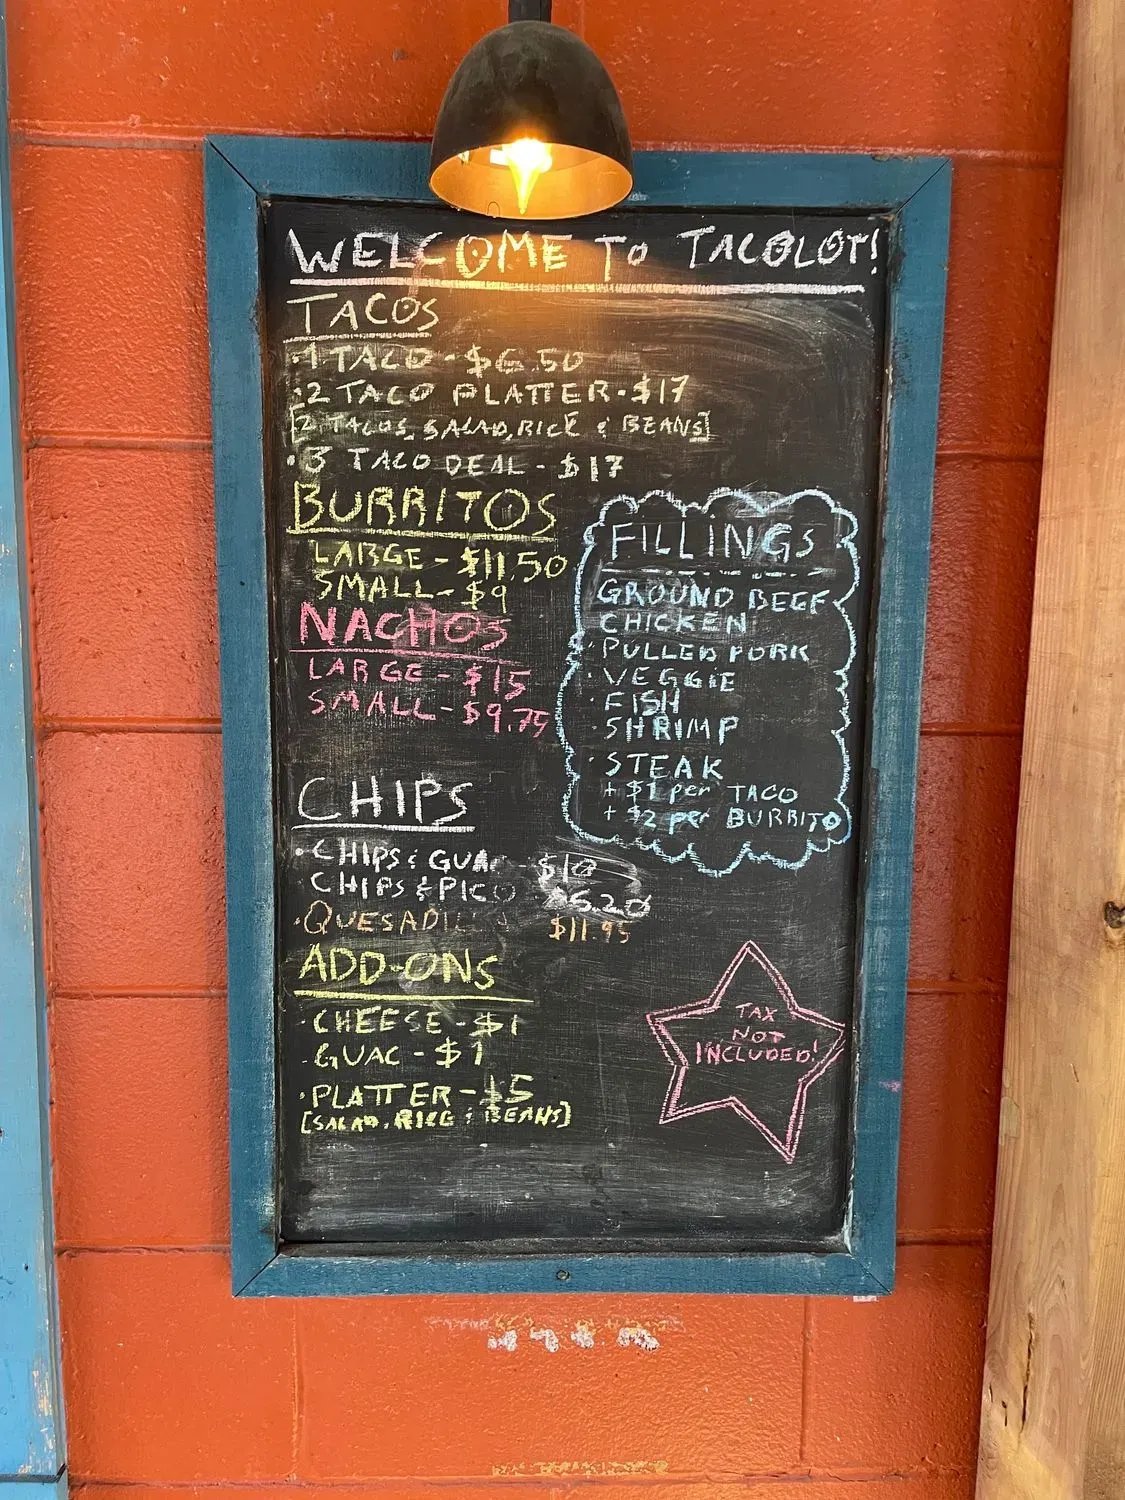 WELCOME TO TACOLOT!
TACOS
·1 TACO - $6.50
·2 TACO PLATTER - $17
[2 TACOS, SALAD, RICE & BEANS]
·3 TACO DEAL - $17
BURRITOS
LARGE - $11.50
SMALL - $9
NACHOS
LARGE - $15
SMALL - $9.75
FILLINGS
GROUND BEEF
CHICKEN
PULLED PORK
·VEGGIE
·FISH
·SHRIMP
·STEAK
+ $1 per TACO
+ $2 per BURRITO
CHIPS
·CHIPS & GUAC - $10
CHIPS & PICO
·QUESADILLA $11.95
ADD-ONS
·CHEESE - $1
·GUAC - $1
·PLATTER - $5
[SALAD, RICE & BEANS]
TAX
NOT
INCLUDED!